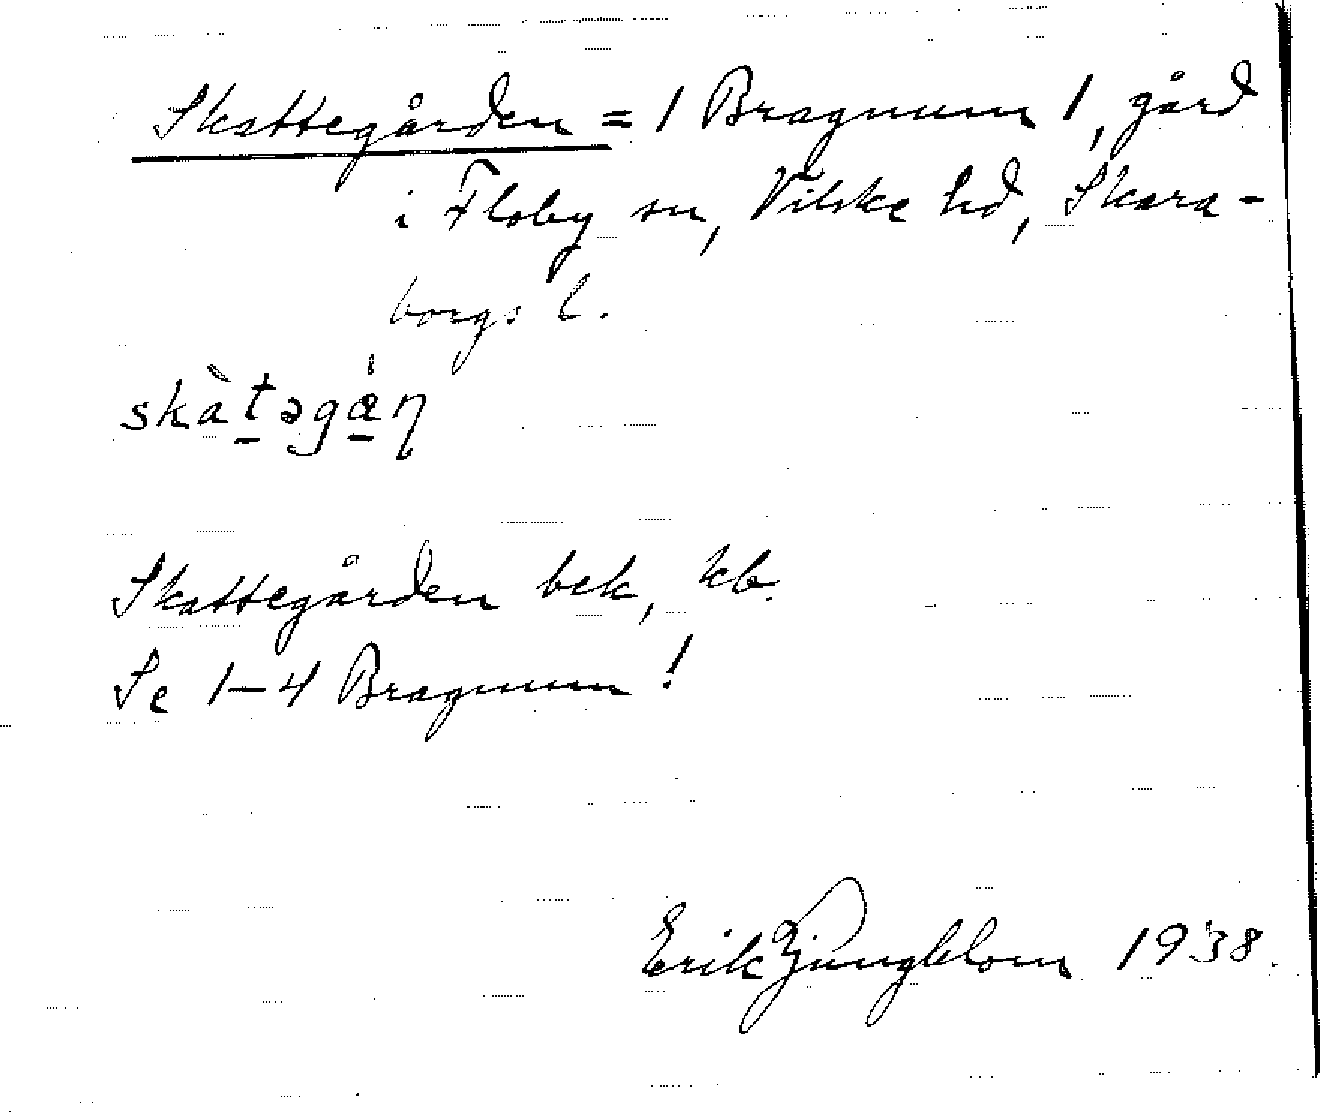 Skattegården = 1 Bragnum 1, gård
i Floby sn, Vilske hd, Skara-
borgs l.
skàtəgá̱ɳ
Skattegården bek, kb.
Se 1-4 Bragnum!
Erik Ljungblom 1938.